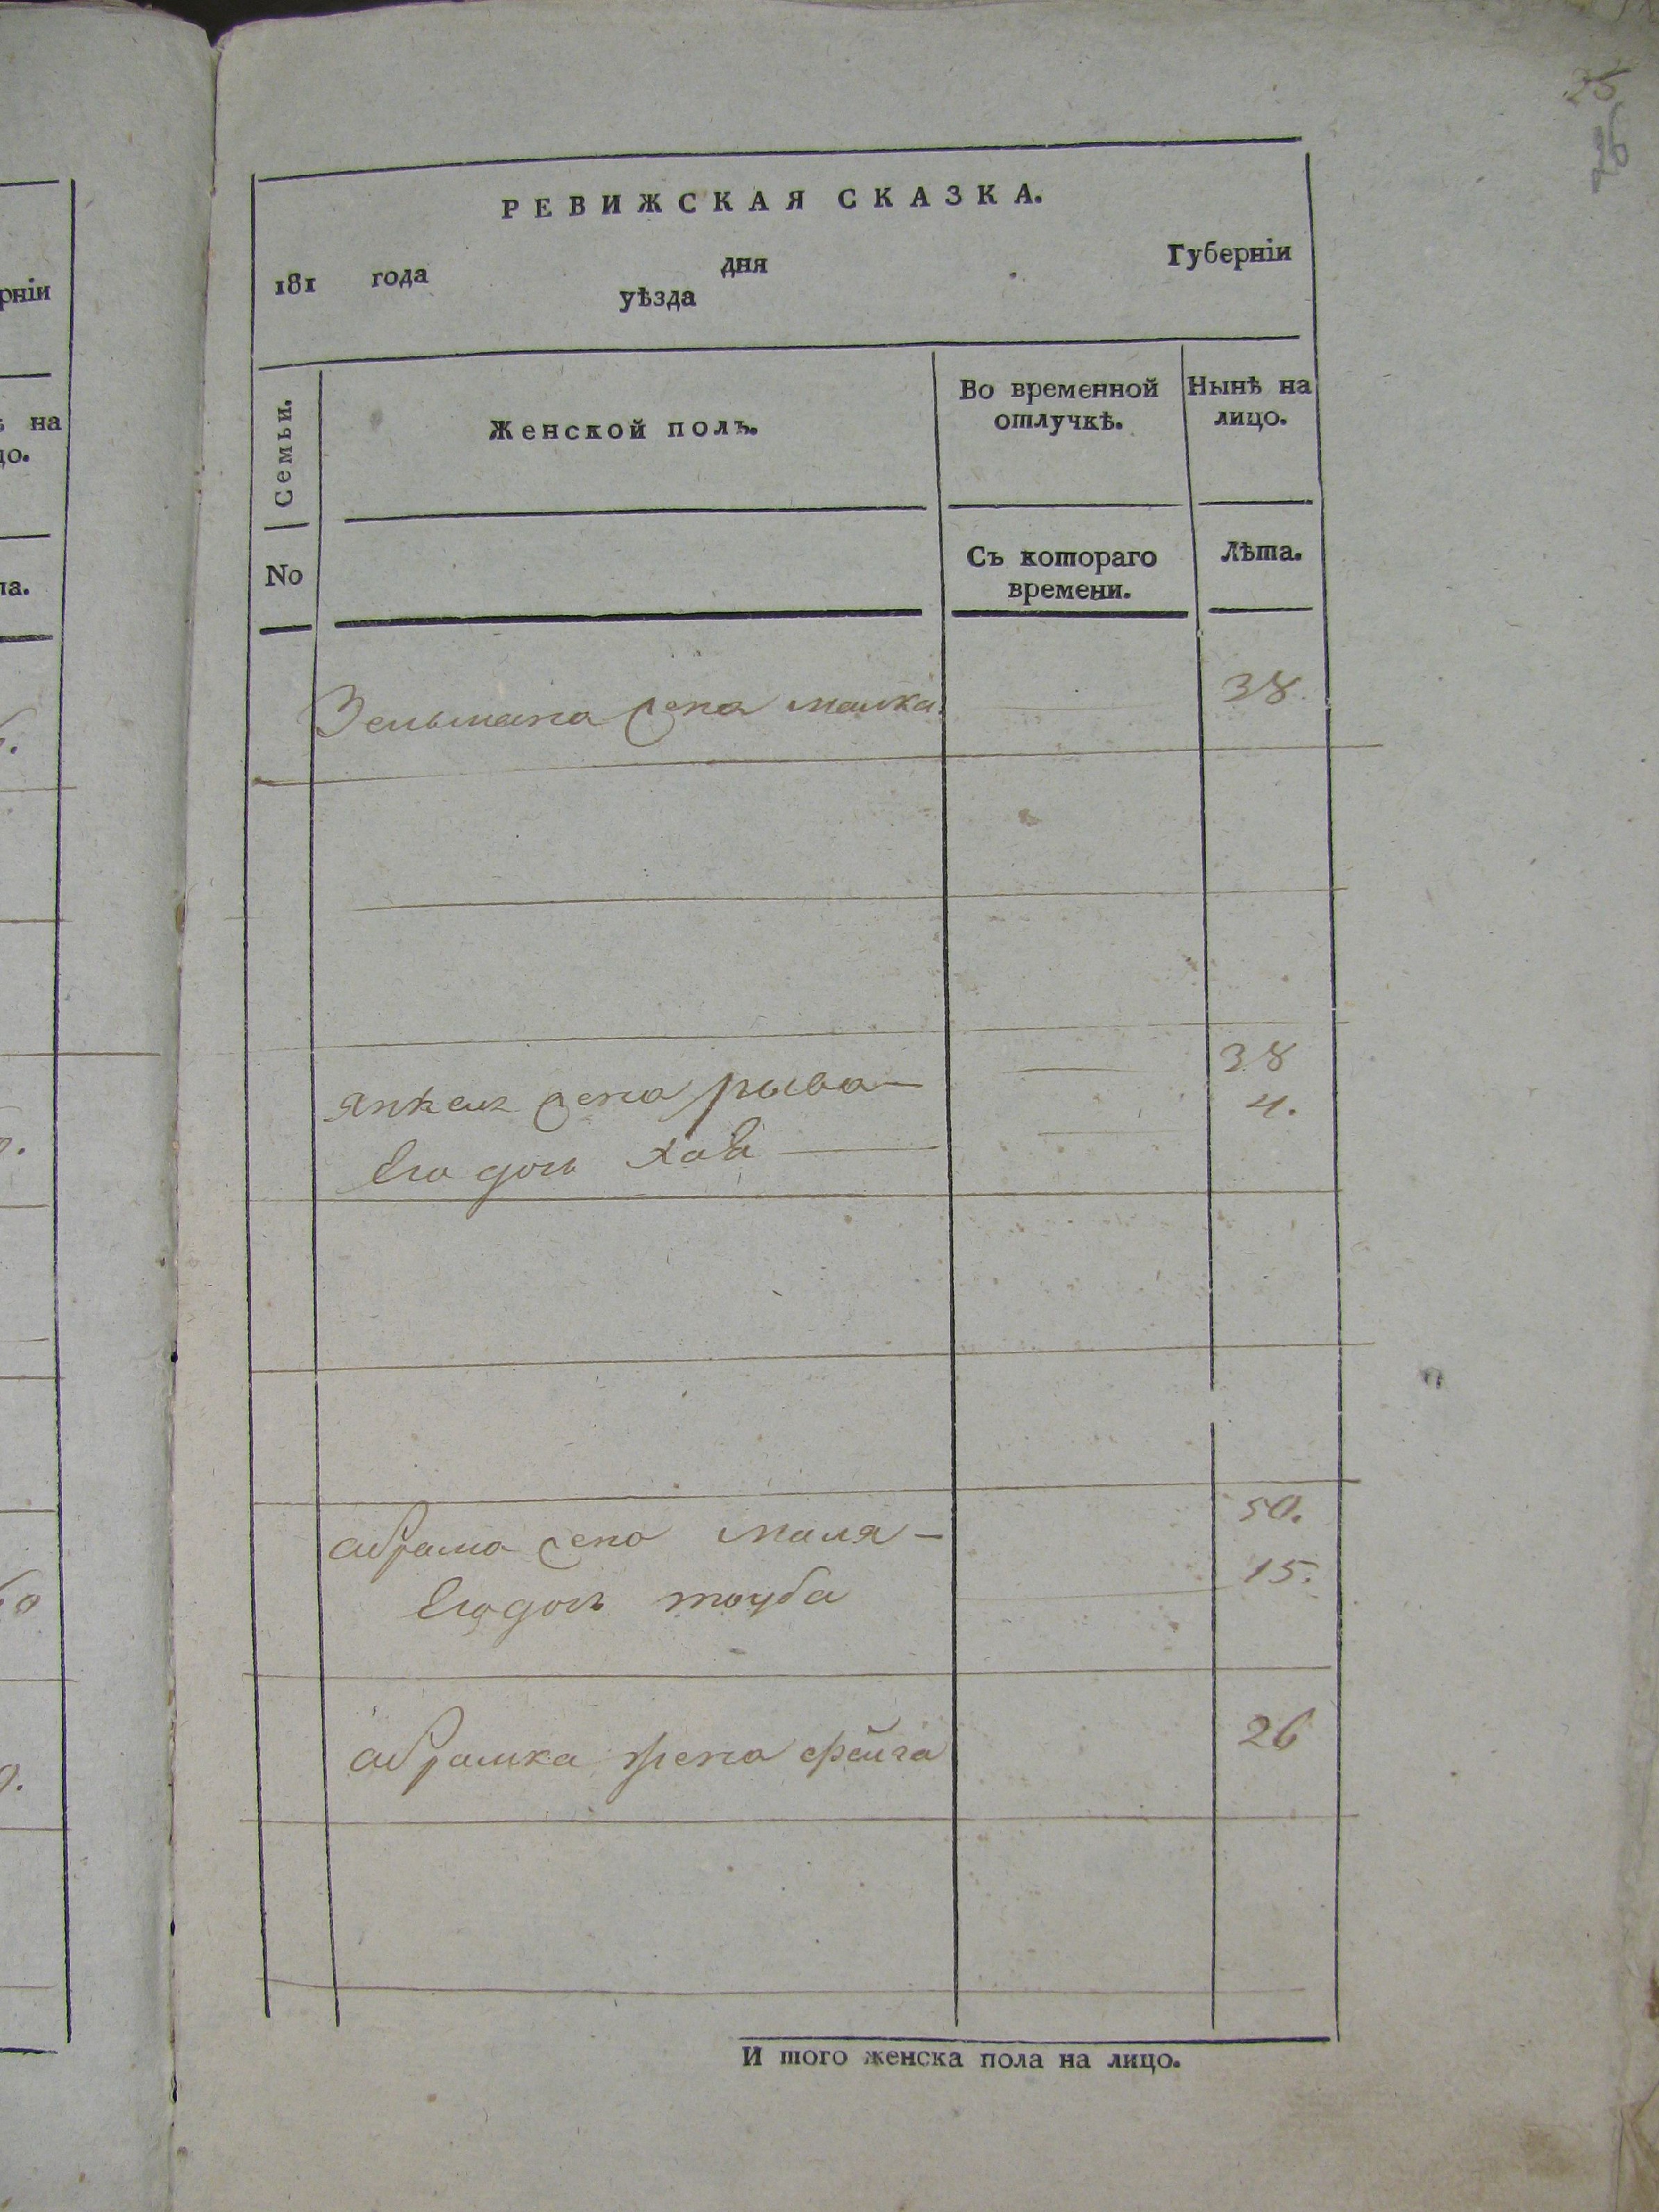 25
26
РЕВИЖСКАЯ СКАЗКА.
181 года дня Губерніи
уѣзда
Семьи. Женской полъ. Во временной отлучкѣ. Нынѣ на лицо.
No Съ котораго времени. Лѣта.
Зельмана жена малка 38
янкеля жена рыва 38
Его дочь хава 4.
абрама жена маля 50.
Его дочь тауба 15.
абрамка жена фейга 26
И того женска пола на лицо.
рніи
на